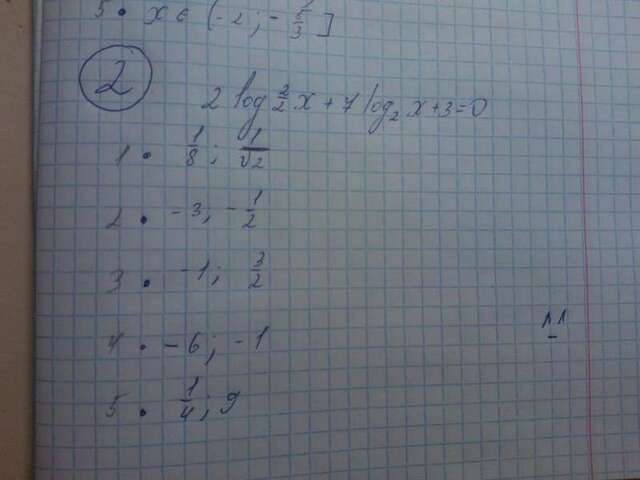 5. x ∈ (-2; -5/3]
2
2 log₂² x + 7 log₂ x + 3 = 0
1. 1/8; 1/√2
2. -3; -1/2
3. -1; 3/2
4. -6; -1
5. 1/4; 9